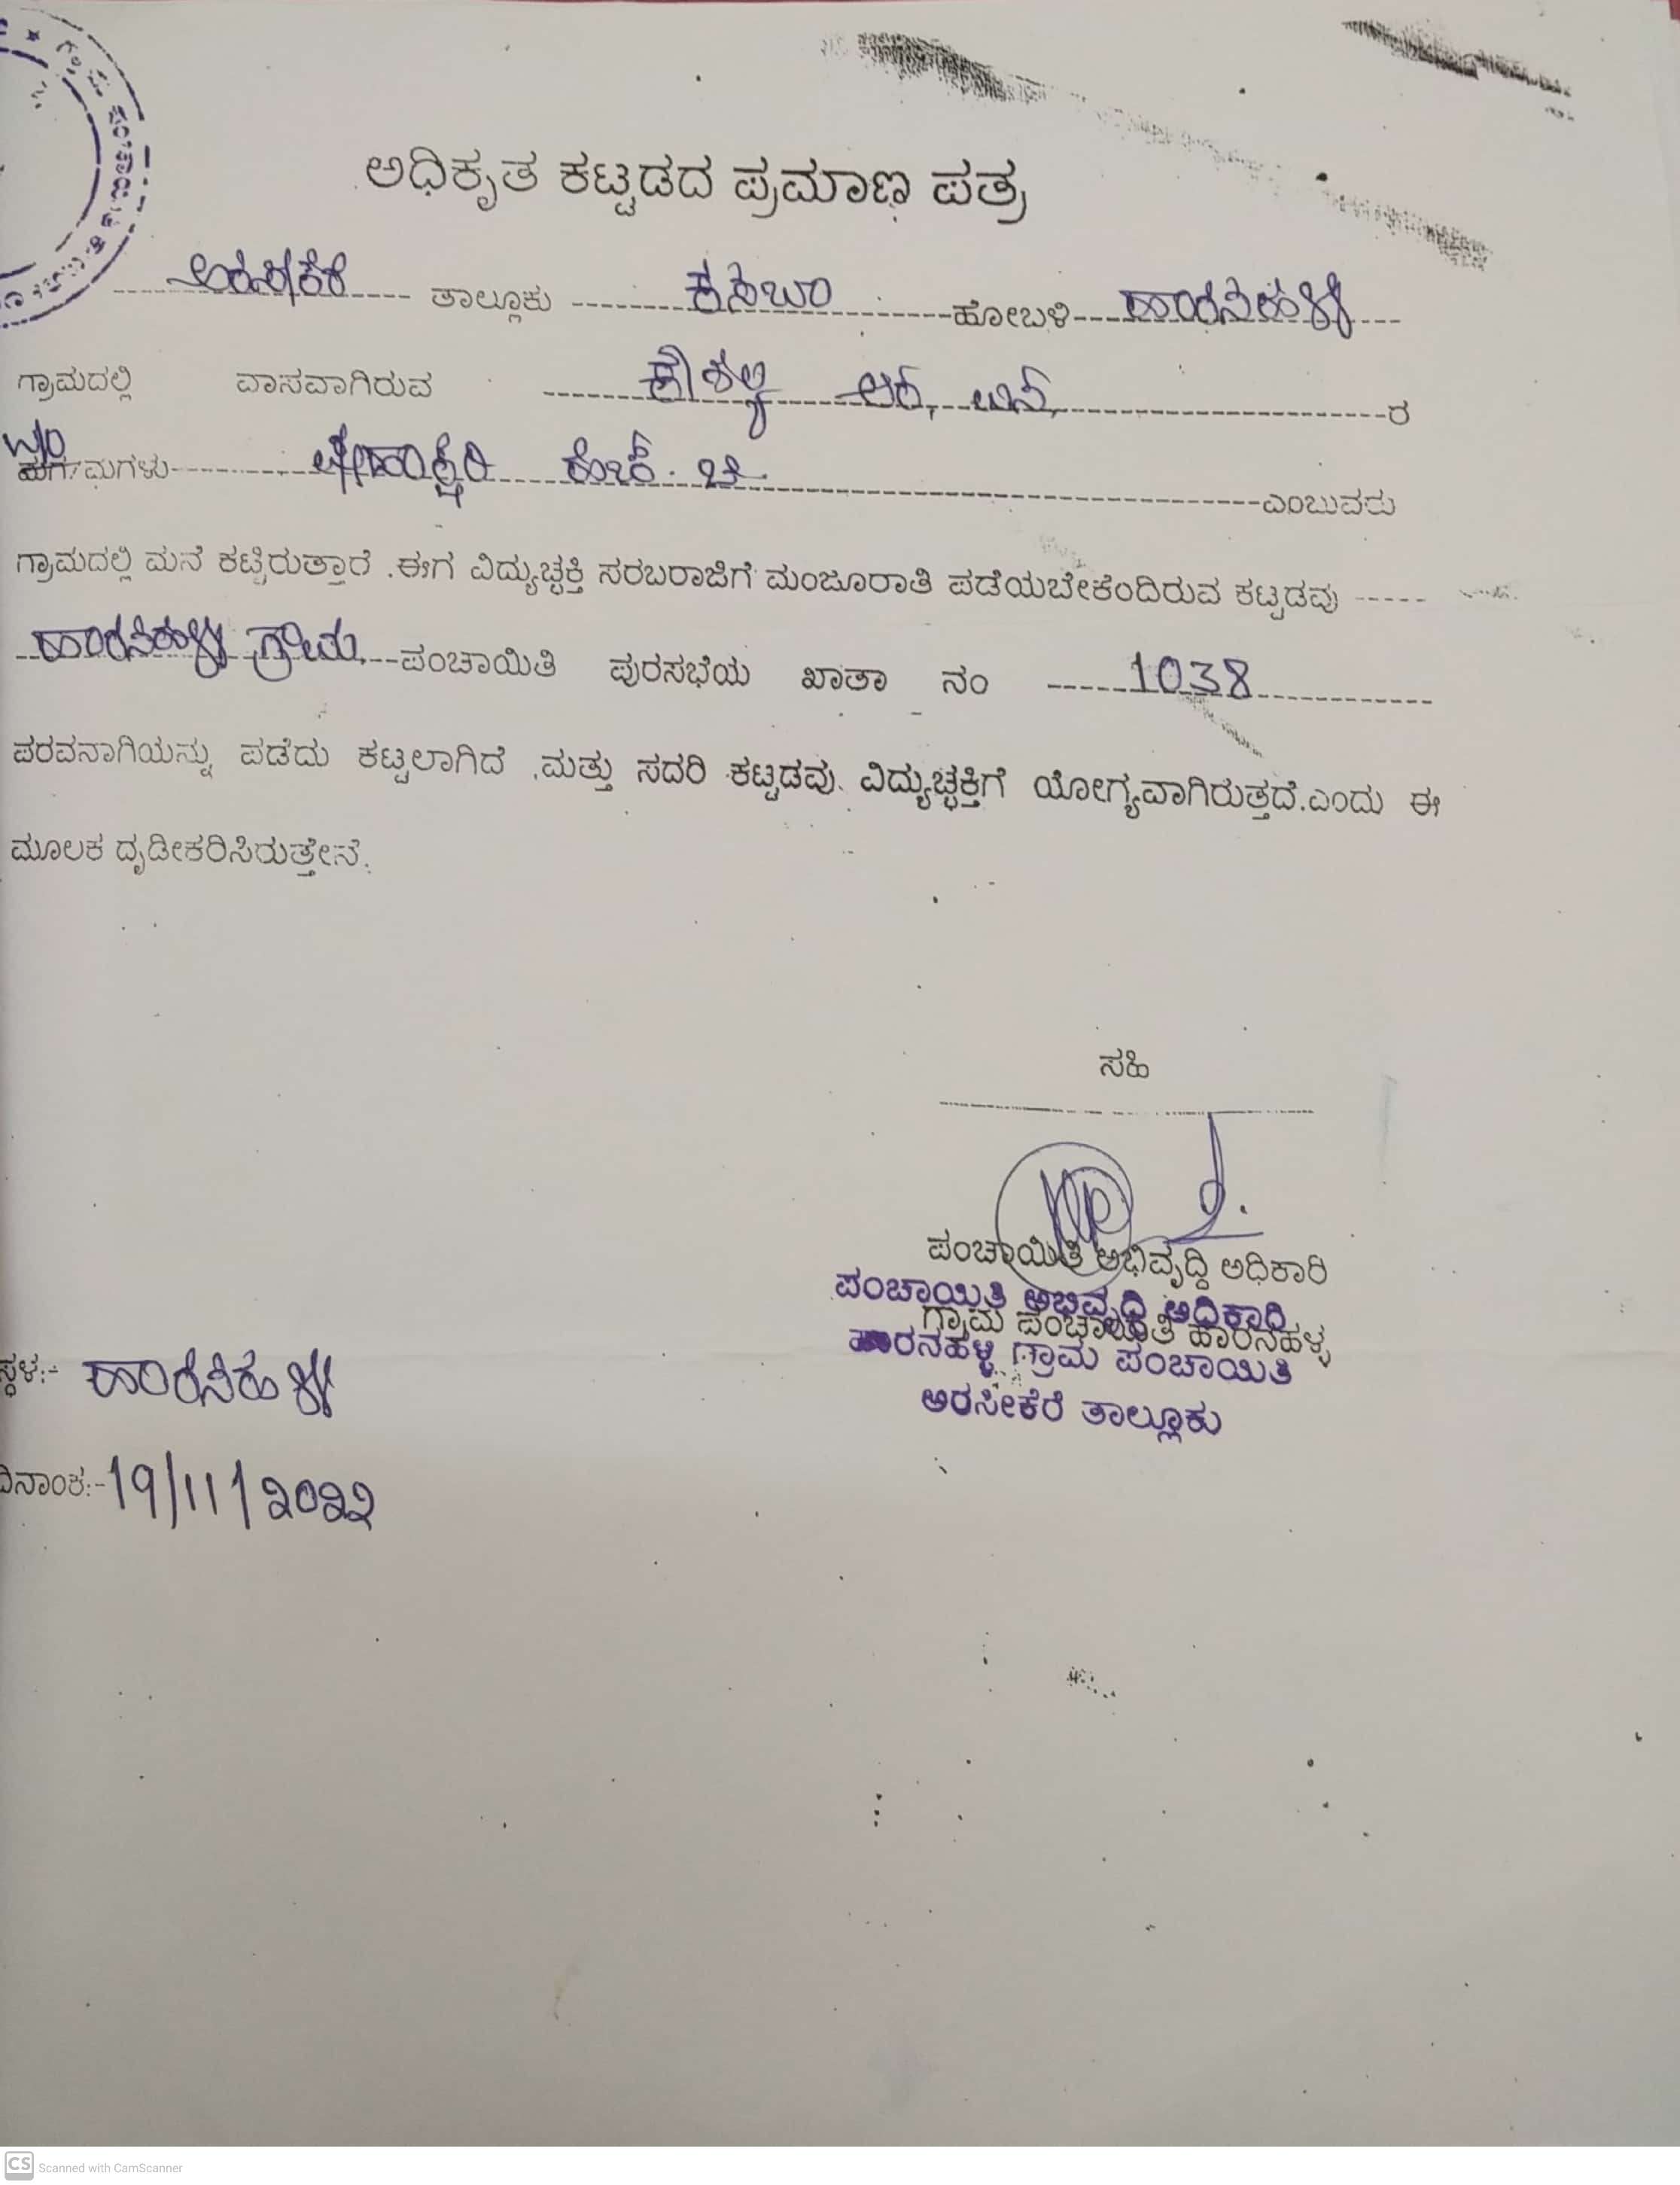 ಅಧಿಕೃತ ಕಟ್ಟಡದ ಪ್ರಮಾಣ ಪತ್ರ
ಅರಸೀಕೆರೆ ತಾಲ್ಲೂಕು ಕಸಬಾ ಹೋಬಳಿ ಹಾರನಹಳ್ಳಿ
ಗ್ರಾಮದಲ್ಲಿ ವಾಸವಾಗಿರುವ ಕೌಶಲ್ಯ ಆರ್, ಎನ್, ರ
W/o
ಮಗ/ಮಗಳು ಹೆಚ್. ಜಿ ಎಂಬುವರು
ಗ್ರಾಮದಲ್ಲಿ ಮನೆ ಕಟ್ಟಿರುತ್ತಾರೆ .ಈಗ ವಿದ್ಯುಚ್ಛಕ್ತಿ ಸರಬರಾಜಿಗೆ ಮಂಜೂರಾತಿ ಪಡೆಯಬೇಕೆಂದಿರುವ ಕಟ್ಟಡವು -----
ಹಾರನಹಳ್ಳಿ ಗ್ರಾಮ ಪಂಚಾಯಿತಿ ಪುರಸಭೆಯ ಖಾತಾ ನಂ 1038
ಪರವನಾಗಿಯನ್ನು ಪಡೆದು ಕಟ್ಟಲಾಗಿದೆ .ಮತ್ತು ಸದರಿ ಕಟ್ಟಡವು ವಿದ್ಯುಚ್ಛಕ್ತಿಗೆ ಯೋಗ್ಯವಾಗಿರುತ್ತದೆ.ಎಂದು ಈ
ಮೂಲಕ ದೃಡೀಕರಿಸಿರುತ್ತೇನೆ.
ಸಹಿ
ಪಂಚಾಯಿತಿ ಅಭಿವೃದ್ಧಿ ಅಧಿಕಾರಿ
ಪಂಚಾಯಿತಿ ಅಭಿವೃದ್ಧಿ ಅಧಿಕಾರಿ
ಗ್ರಾಮ ಪಂಚಾಯಿತಿ ಹಾರನಹಳ್ಳಿ
ಹಾರನಹಳ್ಳಿ ಗ್ರಾಮ ಪಂಚಾಯಿತಿ
ಅರಸೀಕೆರೆ ತಾಲ್ಲೂಕು
ಸ್ಥಳ:- ಹಾರನಹಳ್ಳಿ
ದಿನಾಂಕ:- 19/11/೨೦೨೨
CS Scanned with CamScanner